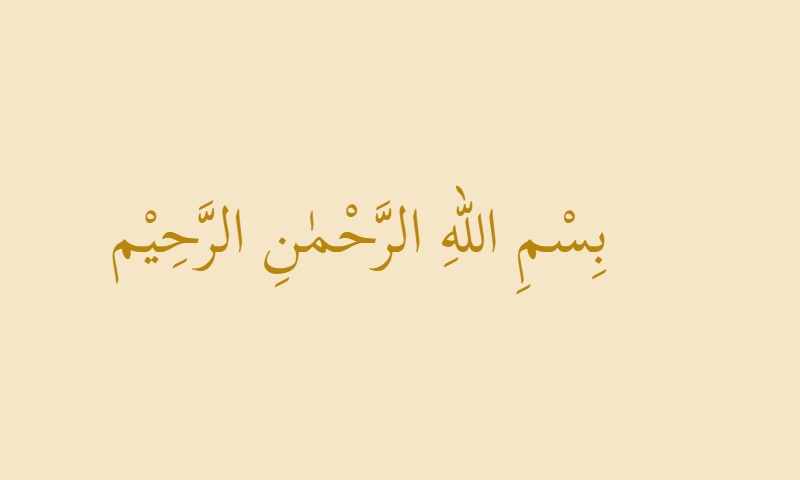 بِسْمِ اللهِ الرَّحْمٰنِ الرَّحِيْم